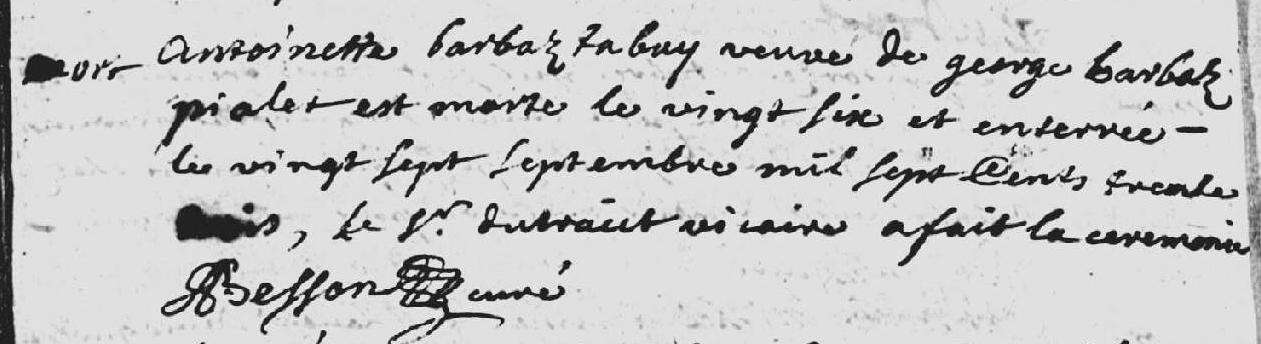 mort Antoinette barbaz tabuy veuve de george barbaz
pialet est morte le vingt six et enterrée –
le vingt sept septembre mil sept Cents trente
trois, le Sr. dutraict vicaire a fait la ceremonie
Besson curé